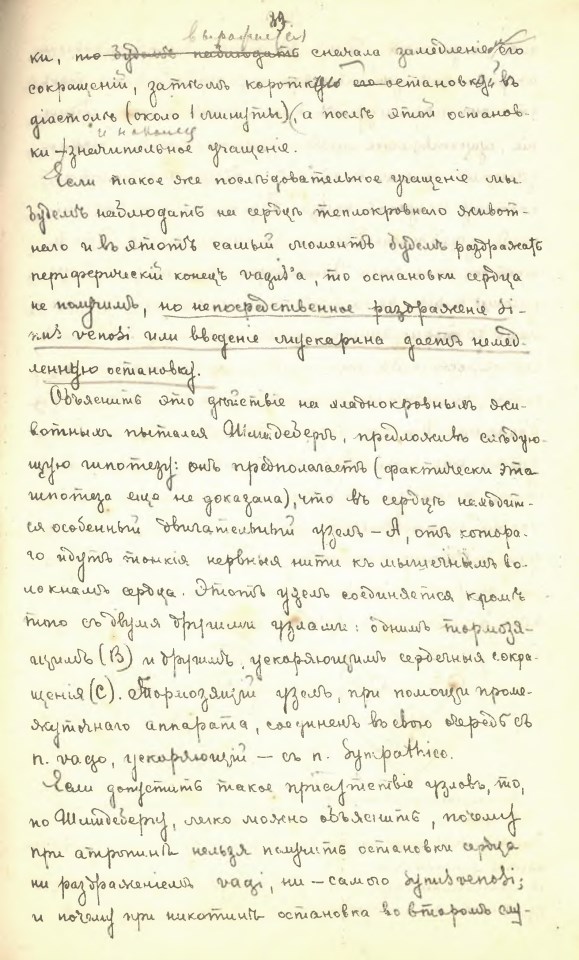 выражается
ки, то будемъ наблюдать сначала замедленіе его
сокращеній, затѣмъ короткую его остановку въ
діастолѣ (около 1 минуты), а послѣ этой останов-
и наконец
ки – значительное учащеніе.
Если такое же послѣдовательное учащеніе мы
будемъ наблюдать на сердцѣ теплокровнаго живот-
наго и въ этотъ самый моментъ будемъ раздражать
периферическій конецъ vagus'a, то остановки сердца
не получимъ, но непосредственное раздраженіе Si-
nus venosi или введеніе мускарина даетъ немед-
ленную остановку.
Объяснить это дѣйствіе на хладнокровныхъ жи-
вотныхъ пытался Шмидебергъ, предложивъ слѣдую-
щую гипотезу: онъ предполагаетъ (фактически эта
гипотеза еще не доказана), что въ сердцѣ находит-
ся особенный двигательный узелъ – А, отъ котора-
го идутъ тонкія нервныя нити къ мышечнымъ во-
локнамъ сердца. Этотъ узелъ соединяется кромѣ
того съ двумя другими узлами: однимъ тормозя-
щимъ (В) и другимъ, ускоряющимъ сердечныя сокра-
щенія (С). Тормозящій узелъ, при помощи проме-
жуточнаго аппарата, соединенъ въ свою очередь съ
n. vago, ускоряющій – съ n. Sympathico.
Если допустить такое присутствіе узловъ, то,
по Шмидебергу, легко можно объяснить, почему
при атропинѣ нельзя получить остановки сердца
ни раздраженіемъ vagi, ни – самого Synus venosi;
и почему при никотинѣ остановка во второмъ слу-